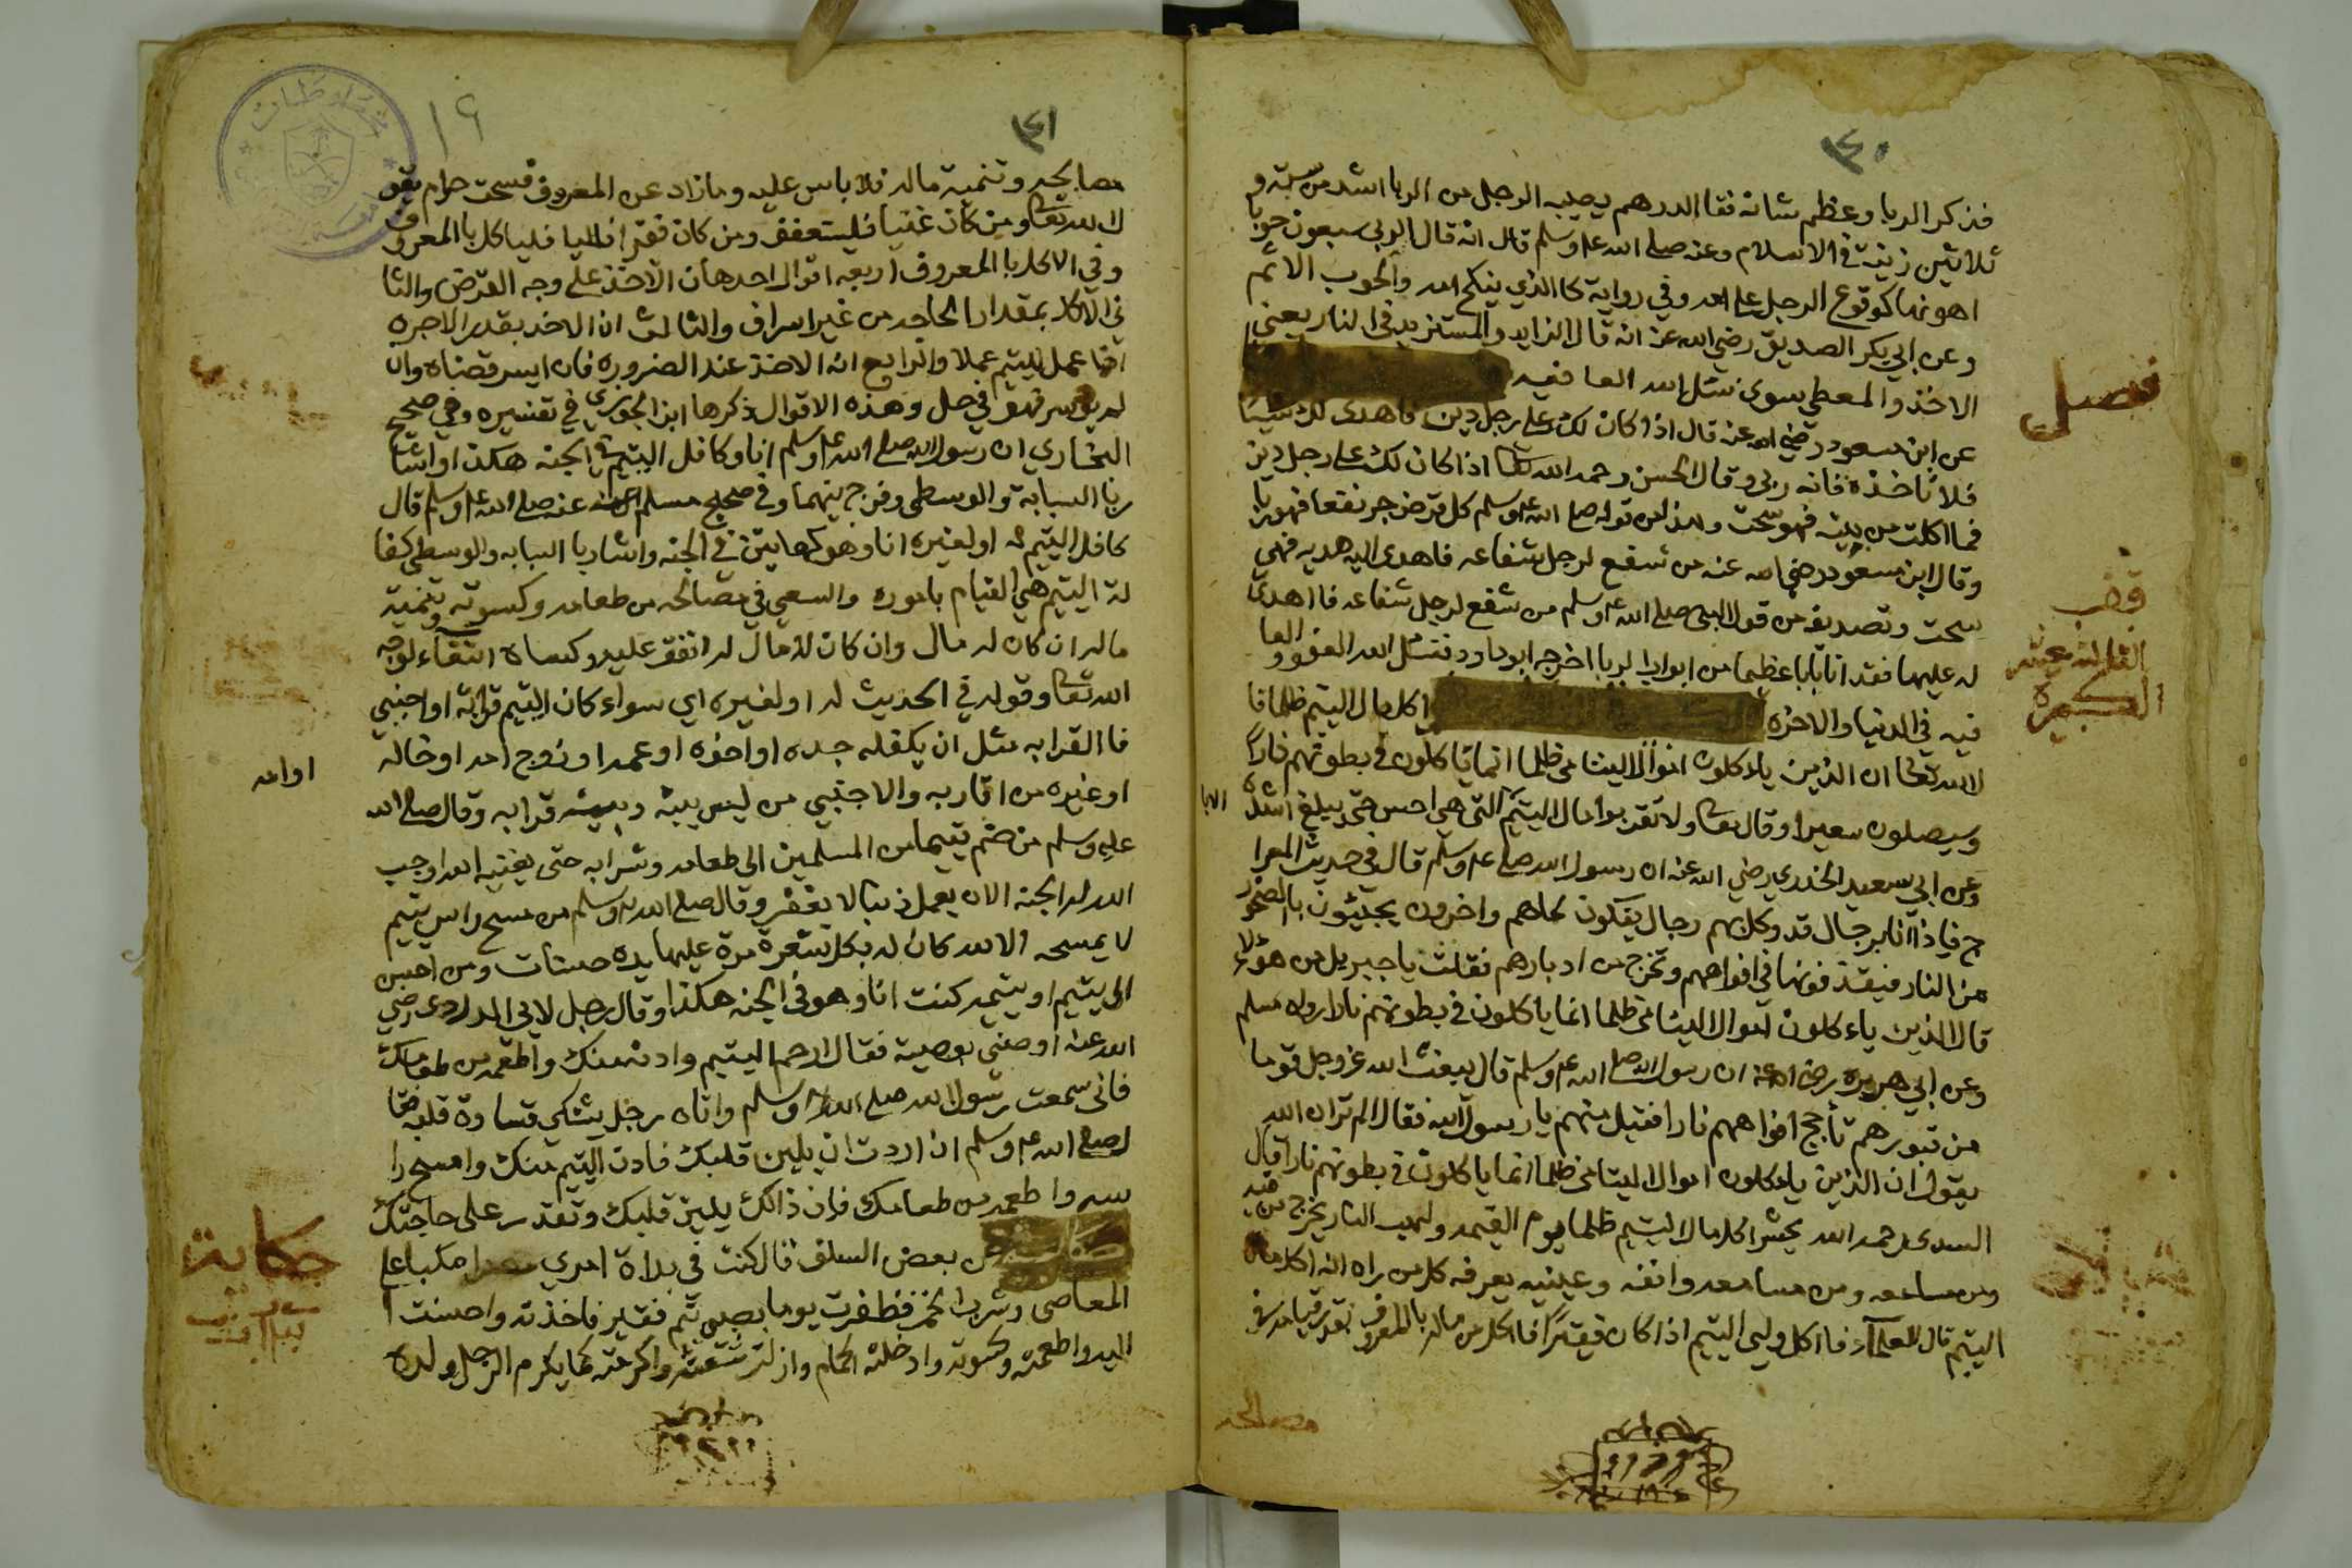 ٤٠
فذكر الربا وعظم شانه فقا الدرهم يصيبه الرجل من الربا اشد من ستة و
ثلاثين زنية في الاسلام وعنه صلى الله عله وسلم قال انه قال الربى سبعون حوبا
اهونها كوقوع الرجل على امه وفي رواية كا الذي ينكح امه والحوب الاثم
وعن ابي بكر الصديق رضي الله عنه انه قال الزايد والمستزيد في النار يعني
الاخذ والمعطي سوى نسئل الله العافيه
فصل
عن ابن مسعود رضي الله عنه قال اذا كان لك على رجل دين فاهدى لك شيئا
فلا تاخذه فانه ربى وقال الحسن رحمه الله تعا اذا كان لك على رجل دين
فما اكلت من بيته فهو سحت وهذا من قوله صلى الله عله وسلم كل قرض جر نفعا فهو ربا
وقال ابن مسعود رضي الله عنه من شفع لرجل شفاعه فاهدى اليه هديه فهي
سحت وتصديقه من قول النبى صلى الله عله وسلم من شفع لرجل شفاعه فااهدى
له عليها فقد اتا بابا عظيما من ابواب الربا اخرجه ابوداود فنسئل الله العفو والعا
فيه في الدنيا والاخره اكل مال اليتيم ظلما قا
الكبيرة
ل الله تعا ان الذين ياء كلون اموال اليتامى ظلما انما ياكلون في بطونهم نارا
وسيصلون سعيرا وقال تعا ولا تقربوا مال اليتيم التى هي احسن حتى يبلغ اشده
الابا
وعن ابي سعيد الخدري رضي الله عنه ان رسول الله صلى عله وسلم قال في حديث المعرا
ج فاذا انا برجال قد وكل بهم رجال يفكون لحاهم واخرون يجيئون بالصخور
من النار فيقذفونها في افواههم وتخرج من ادبارهم فقلت ياجبريل من هؤلاء
قال الذين ياء كلون اموال اليتامى ظلما انما ياكلون في بطونهم نارا رواه مسلم
وعن ابي هريره رضي الله عنه ان رسول الله صلى الله عله وسلم قال يبعث الله عز وجل قوما
من قبورهم تأجج افواههم نارا فقيل منهم يا رسول الله فقال الم تر ان الله
يقول ان الذين ياءكلون اموال اليتامى ظلما انما ياكلون في بطونهم نارا قال
السدى رحمه الله يحشر اكل مال اليتيم ظلما يوم القيمه ولهب النار يخرج من فيه
ومن مساعه ومن مسامعه وانفه وعينيه يعرفه كل من راه انه اكل مال
اليتيم قال العلمآء فا اكل ولى اليتيم اذا كان فقيرا فا اكل من ماله بالمعروف بقدر قيامه في
مصالحه
٤١
١٩
مصالحه وتنمية ماله فلا باس عليه وما زاد عن المعروف فسحت حرام يقو
ل الله تعا ومن كان غنيا فليستعفف ومن كان فقيرا فليا كل بالمعروف
وفي الاكل با المعروف اربعه اقوال احدها ان الاخذ على وجه القرض والثا
ني الاكل بمقدار الحاجه من غير اسراف والثالث ان الاخذ بقدر الاجره
اذا عمل لليتيم عملا والرابع انه الاخذ عند الضروره فان ايسر قضاه وان
لم يوسر فهو في حل وهذه الاقوال ذكرها ابن الجوزي في تفسيره وفي صحيح
البخاري ان رسول الله صلى الله عله وسلم انا وكافل اليتيم في الجنه هكذا واشا
ر با السبابة والوسطى وفرج بينهما وفي صحيح مسلم عنه صلى الله عله وسلم قال
كافل اليتيم له او لغيره انا وهو كهاتين في الجنه واشار با السبابه والوسطى كفا
لة اليتيم هي القيام باموره والسعي في مصالحه من طعامه وكسوته وتنمية
ماله ان كان له مال وان كان لا مال له انفق عليه وكساه ابتغاء لوجه
الله تعا وقوله في الحديث له او لغيره اي سواء كان اليتيم قرابة او اجنبي
فا القرابه مثل ان يكفله جده او اخوه او عمه او زوج امه او خاله
او امه
او غيره من اقاربه والاجنبي من ليس بينه وبينه قرابه وقال صلى الله
عليه وسلم من ضم يتيما من المسلمين الى طعامه وشرابه حتى يغنيه الله اوجب
الله له الجنه الا ان يعمل ذنبا لا يغفر وقال صلى الله عله وسلم من مسح راس يتيم
لا يمسحه الا لله كان له بكل شعرة مرة عليها يده حسنات ومن احسن
الى يتيم او يتيمه كنت انا وهو في الجنه هكذا وقال رجل لابي الدردى رضي
الله عنه اوصني بوصية فقال ارحم اليتيم وادنه منك واطعمه من طعامك
فانى سمعت رسول الله صلى الله عله وسلم واتاه رجل يشتكي قساوة قلبه فقا
ل صلى الله عله وسلم ان اردت ان يلين قلبك فادن اليتيم منك وامسح را
سه واطعمه من طعامك فان ذالك يلين قلبك وتقدر على حاجتك
حكاية
عن بعض السلف قال كنت في بداة امري مكبا على
المعاصى وشرب الخمر فظفرت يوما بصبي يتيم فقير فاخذته واحسنت ا
اليه واطعمته وكسوته وادخلته الحمام وازلت شعثه واكرمته كما يكرم الرجل ولده